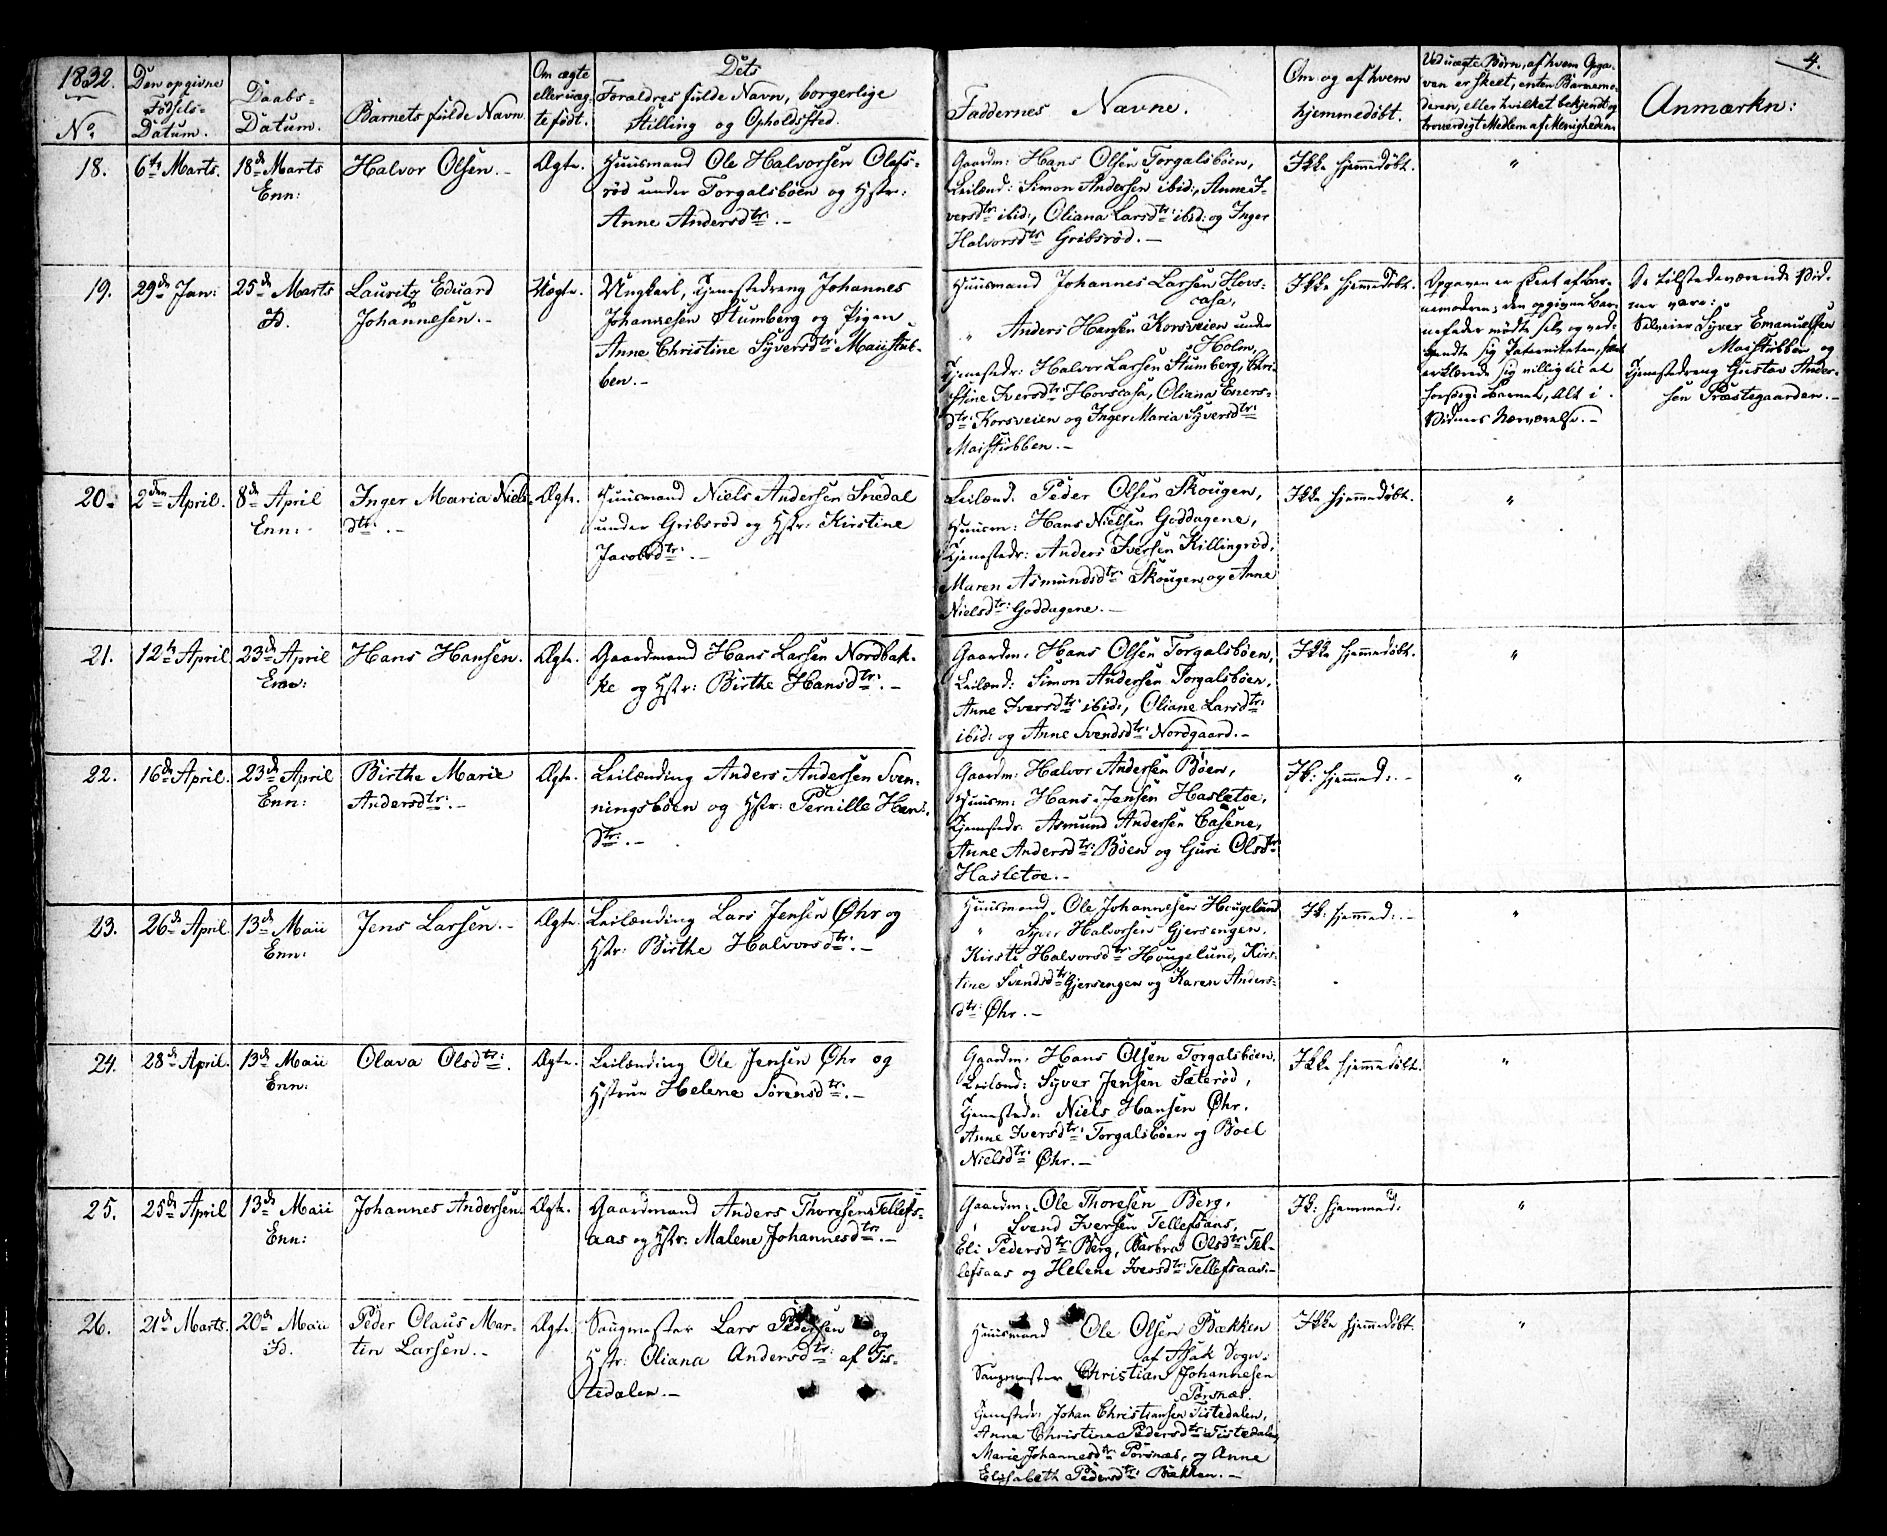 1832.
No
Den opgivne
Fødsels-
Datum.
Daabs-
Datum.
Barnets fulde Navn.
Om ægte
eller uæg-
te født.
Dets
Forældres fulde Navn, borgerlige
Stilling og Opholdssted.
Faddernes Navne.
Om og af hvem
hjemmedøbt.
Ved uægte Børn, af hvem Opga-
ven er skeet, enten Barnemo-
deren, eller hvilket bekjendt og
troværdigt Medlem af Menigheden
Anmærkn:
4.
18.
6te Marts.
18de Marts
Enn:
Halvor Olsen.-
Ægte.
Huusmand Ole Halvorsen Olafs-
rød under Torgalsbøen og Hstr:
Anne Andersdtr:.-
Gaardm: Hans Olsen Torgalsbøen,
Leilænd: Simon Andersen ibid:, Anne I-
versdtr: ibid:, Oliana Larsdtr: ibid: og Inger
Halvorsdtr: Gribsrød.-
Ikke hjemmedøbt.
"
19.
29de Jan:
25de Marts
Id.
Lauritz Eduard
Johannesen.-
Uægte.
Ungkarl, Tjenestedreng Johannes
Johannesen Stumberg og Pigen
Anne Christine Syversdtr: Maistub-
ben.-
Huusmand Johannes Larsen Hovs-
casa,
" Anders Hansen Korsveien under
Holm,
Tjenestedr: Halvor Larsen Stumberg, Chri-
stine Iversdtr: Hovscasa, Oliana Evers-
dtr: Korsveien og Inger Maria Syversdtr:
Maistubben.-
Ikke hjemmedøbt.
Opgaven er skeet af Bar-
nemoderen; den opgivne Bar-
nefader mødte selv og ved-
kjendte sig Paterniteten, samt
erklærede sig villig til at
forsørge Barnet, Alt i
Vidners Nærværelse.-
De tilstedeværende Vid-
ner vare:
Selveier Syver Emanuelsen
Maistubben og
Tjenestedreng Gustav Ander-
sen Præstegaarden.-
20.
2den April.
8de April
Enn:
Inger Maria Niels-
dtr:.-
Ægte.
Huusmand Niels Andersen Snedal
under Gribsrød og Hstr: Kirstine
Jacobsdtr:.-
Leilænd. Peder Olsen Skougen,
Huusm: Hans Nielsen Goddagene,
Tjenestedr: Anders Iversen Killingrød,
Maren Asmundsdtr: Skougen og Anne
Nielsdtr: Goddagene.-
Ikke hjemmedøbt.
"
21.
12te April.
23de April
Enn:
Hans Hansen.
Ægte.
Gaardmand Hans Larsen Nordbak-
ke og Hstr: Birthe Hansdtr:.-
Gaardm: Hans Olsen Torgalsbøen,
Leilænd: Simon Andersen Torgalsbøen,
Anne Iversdtr: ibid:, Oliane Larsdtr:
ibid: og Anne Svendsdtr: Nordgaard.-
Ikke hjemmedøbt.
"
22.
16de April.
23de April
Enn:
Birthe Marie
Andersdtr:.-
Ægte.
Leilænding Anders Andersen Sven-
ningsbøen og Hstr: Pernille Hans-
dtr:.-
Gaardm: Halvor Andersen Bøen,
Huusm: Hans Jensen Hasletoe,
Tjenestedr: Asmund Andersen Casene,
Anne Andersdtr: Bøen og Guri Olsdtr:
Hasletoe.-
Ik: hjemmed:.-
"
23.
26de April
13de Maii
Enn:
Jens Larsen.-
Ægte.
Leilænding Lars Jensen Øhr og
Hstr: Birthe Halvorsdtr:.-
Huusmand Ole Johannesen Hougelund
" Syver Halvorsen Gjersengen,
Kirsti Halvorsdtr: Hougelund, Kirs-
tine Svendsdtr: Gjersengen og Karen Anders-
dtr: Øhr.-
Ik: hjemmed:.-
"
24.
28de April.
13de Maii
Enn:
Olava Olsdtr:.
Ægte.
Leilænding Ole Jensen Øhr og
Hstrue Helene Sørensdtr:.-
Gaardm. Hans Olsen Torgalsbøen,
Leilænd: Syver Jensen Sæterød,
Tjenestedr: Niels Hansen Øhr,
Anne Iversdtr: Torgalsbøen og Boel
Nielsdtr: Øhr.-
Ikke hjemmedøbt.
"
25.
25de April
13de Maii
Enn:
Johannes Andersen.
Ægte.
Gaardmand Anders Thoresen Tellefs-
aas og Hstr: Malene Johannesdtr:.-
Gaardm: Ole Thoresen Berg,
" Svend Iversen Tellefsaas,
Eli Pedersdtr: Berg, Barbra Olsdtr: Tel-
lefsaas og Helene Iversdtr: Tellefsaas.-
Ik: hjemmed:
"
26.
21de Marts.
20de Maii
Id.
Peder Olaus Mar-
tin Larsen.-
Ægte.
Saugmester Lars Pedersen og
Hstr: Oliana Andersdtr: af Tis-
tedalen.-
Huusmand Ole Olsen Bækken
af Asak Sogn:
Saugmester Christian Johannesen
Porsnæs.
Tjenestedr: Johan Christiansen Tistedalen,
Anne Christine Pedersdtr: Tistedalen,
Marie Johannesdtr: Porsnæs, og Anne
Elisabeth Pedersdtr: Bækken.-
Ikke hjemmedøbt.
"